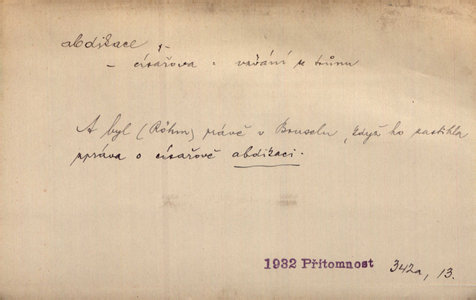 abdikace, f.
– císařova : vzdání se trůnu
A byl (Röhm) právě v Bruselu, když ho zastihla
zpráva o císařově abdikaci.
1932 Přítomnost 342a, 13.